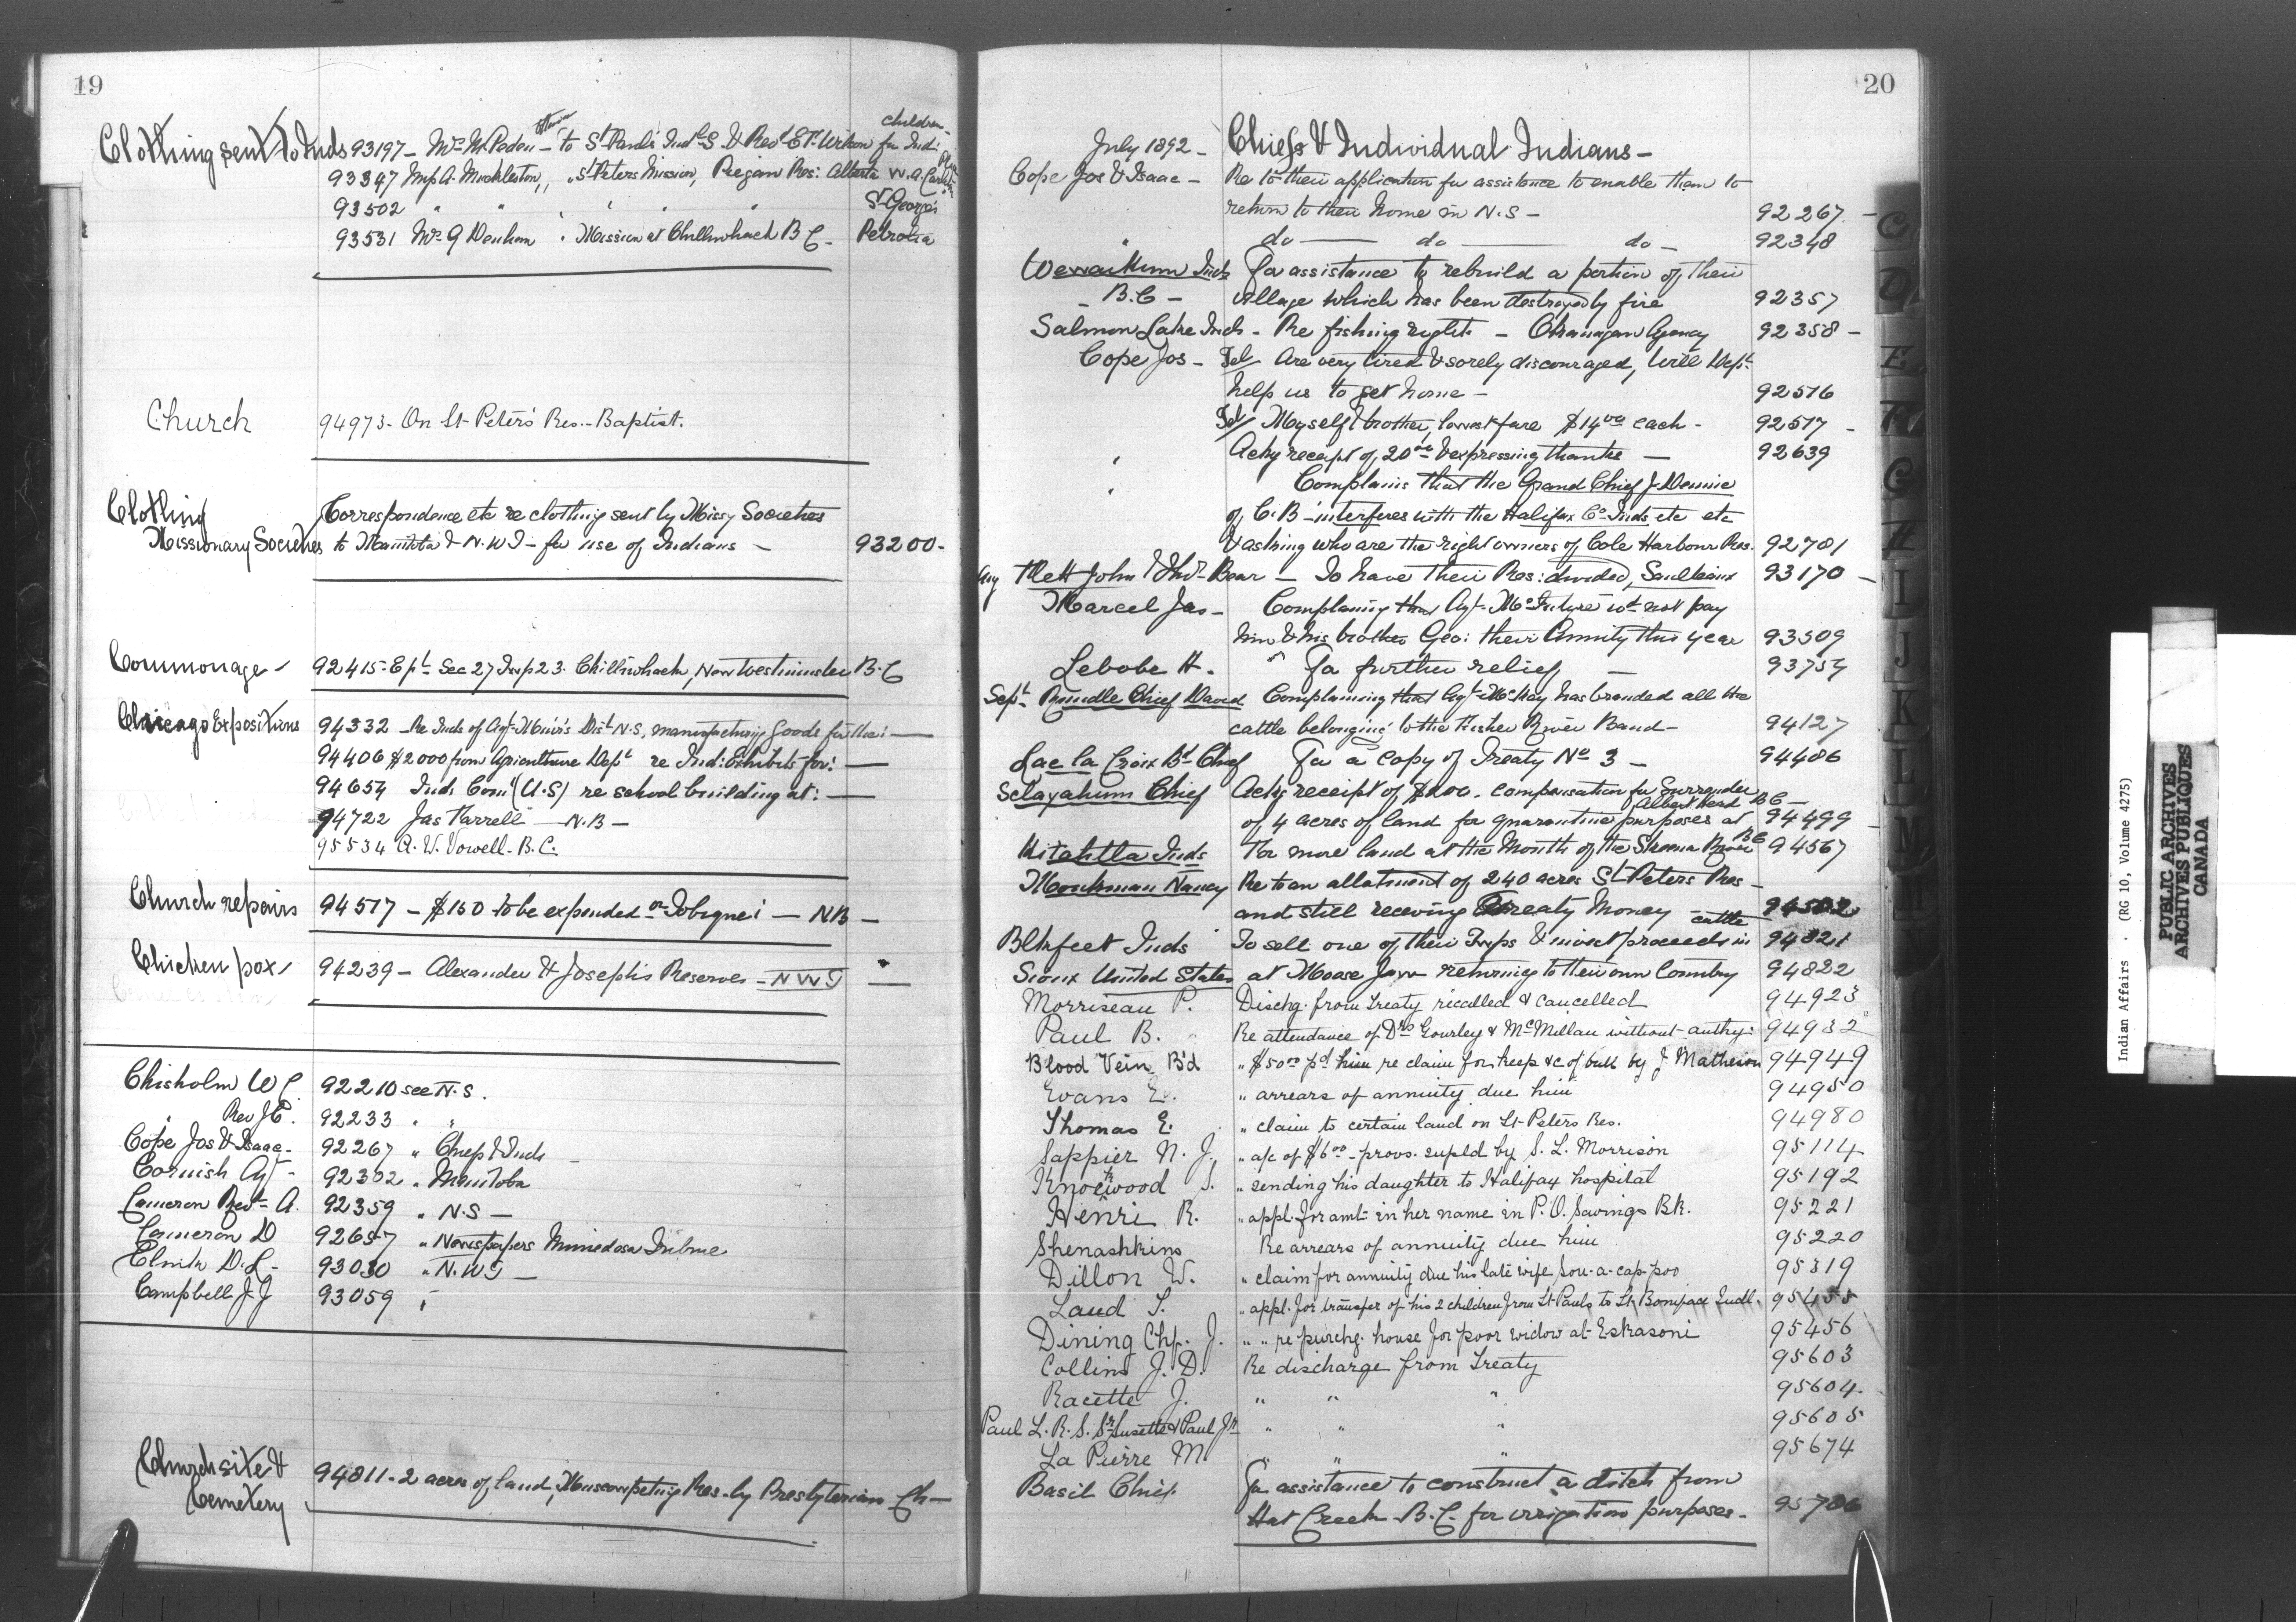 19
Clothing sent to Inds 93197 - Mrs McPaden - Ottawa to St Paul's Indl S. & Revd E.F. Wilson for Indi: children -
93347 Mrs A. Muckleston, " " St Peters Mission, Peigan Res: Alberta W.A.
93502 " " " " " St George's
93531 Mrs G Denham " Mission at Chilliwhack B C - Petrolia
Church 94973 - On St Peter's Res. - Baptist.
Clothing
Missionary Societies
Correspondence etc re clothing sent by Missy Societies
to Manitoba & N.W.T - for use of Indians - 93200 -
Commonage - 92415 - E pt Sec 27 Twp 23. Chilliwhack, New Westminster B.C
Chicago Expositions 94332 - Re Inds of Agt Muir's Dist N.S, manufacturing goods for the: -
94406 $2000 from Agriculture Dept re Ind: Exhibits for: -
94654 Ind. Comr (U.S) re school building at: -
94722 Jas Farrell - N.B -
95534 A. W. Vowell - B.C.
Church repairs 94517 - $150 to be expended on Tobique: - NB -
Chicken pox 94239 - Alexander & Joseph's Reserves - N W T -
Chisholm W C. 92210 see N.S.
" Rev J C. 92233 " "
Cope Jos & Isaac - 92267 " Chiefs & Inds -
Cornish Agt - 92302 " Manitoba
Cameron Revd A. 92359 " N.S -
Cameron D 92657 " Newspapers Minnedosa Tribune
Clink D.L - 93030 " N.W T -
Campbell J J 93059 "
Church site &
Cemetery
94811 - 2 acres of land, Muscowpetung Res - by Presbyterian Ch -
20
July 1892 - Chiefs & Individual Indians -
Cope Jos & Isaac - Re to their application for assistance to enable them to
return to their home in N.S - 92267 -
" do - do - do - 92348
Wewaikum Inds For assistance to rebuild a portion of their
- B.C - village which has been destroyed by fire 92357
Salmon Lake Inds - Re fishing rights - Okanagan Agency 92358 -
Cope Jos - Tel Are very tired & sorely discouraged, will Dept
help us to get home - 92516
Tel Myself & brother, lowest fare $14 00 each - 92517 -
" Ackg receipt of 20 00 & expressing thanks - 92639
" Complains that the Grand Chief J. Dennie
of C.B - interferes with the Halifax Co Inds etc etc
& asking who are the right owners of Cole Harbour Res. 92781
Aug Flett John & Thos Bear - To have their Res: divided, Saulteaux 93170 -
Marcel Jas - Complaining that Agt McIntyre wd not pay
him & his brother Geo: their Annuity this year 93509
Lebobe H. " For further relief - 93754
Sept Rundle Chief David Complaining that Agt McKay has branded all the
cattle belonging to the Fisher River Band - 94127
Lac la Croix Bd Chief For a copy of Treaty No 3 - 94486
Sclayahum Chief Ackg receipt of $200. compensation for Surrender
of 4 acres of land for quarantine purposes at Albert Head B C - 94499
Kitahtla Inds For more land at the Mouth of the Skeena River B C 94567
Monkman Nancy Re to an allotment of 240 acres St Peters Res -
and still receiving Treaty Money 94582
Blkfeet Inds To sell one of their Twps & invest proceeds in cattle 94821
Sioux United States at Moose Jaw returning to their own Country 94822
Morriseau P. Dischg. from treaty recalled & cancelled 94923
Paul B. Re attendance of Drs Gourley & McMillan without authy: 94932
Blood Vein B'd " $50 00 pd him re claim for keep &c of bull by J. Matheson 94949
Evans E. " arrears of annuity due him 94950
Thomas E. " claim to certain land on St Peters Res. 94980
Sappier N. J. " a/c of $6 00 - provs. supld by S. L. Morrison 95114
Knockwood S. " sending his daughter to Halifax hospital 95192
Henri R. " appl. for amt. in her name in P.O. Savings BK. 95221
Shenashkins Re arrears of annuity due him 95220
Dillon W. " claim for annuity due his late wife Sou-a-cap-poo 95319
Laud S. " appl. for transfer of his 2 children from St Pauls to St Boniface Indl. 95455
Dining Chf. J. " " re purchg. house for poor widow at Eskasoni 95456
Collins J. D. Re discharge from treaty 95603
Racette J. " " " 95604
Paul L. R. S. Sr Susette & Paul Jr " " " 95605
La Pierre M " " " 95674
Basil Chief For assistance to construct a ditch from
Hat Creek B.C. for irrigation purposes - 95786
C
D
E
F
G
H
I
J
K
L
M
Indian Affairs . (RG 10, Volume 4275)
PUBLIC ARCHIVES
ARCHIVES PUBLIQUES
CANADA